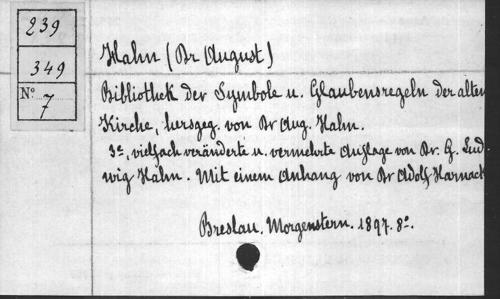 239
349
N° 7
Hahn (Dr August)
Bibliothek der Symbole u. Glaubensregeln der alten
Kirche, hersgeg. von Dr Aug. Hahn.
3e, vielfach veränderte u. vermehrte Auflage von Dr. G. Lud
wig Hahn. Mit einem Anhang von Dr Adolf Harnack
Breslau. Morgenstern. 1897. 8°.